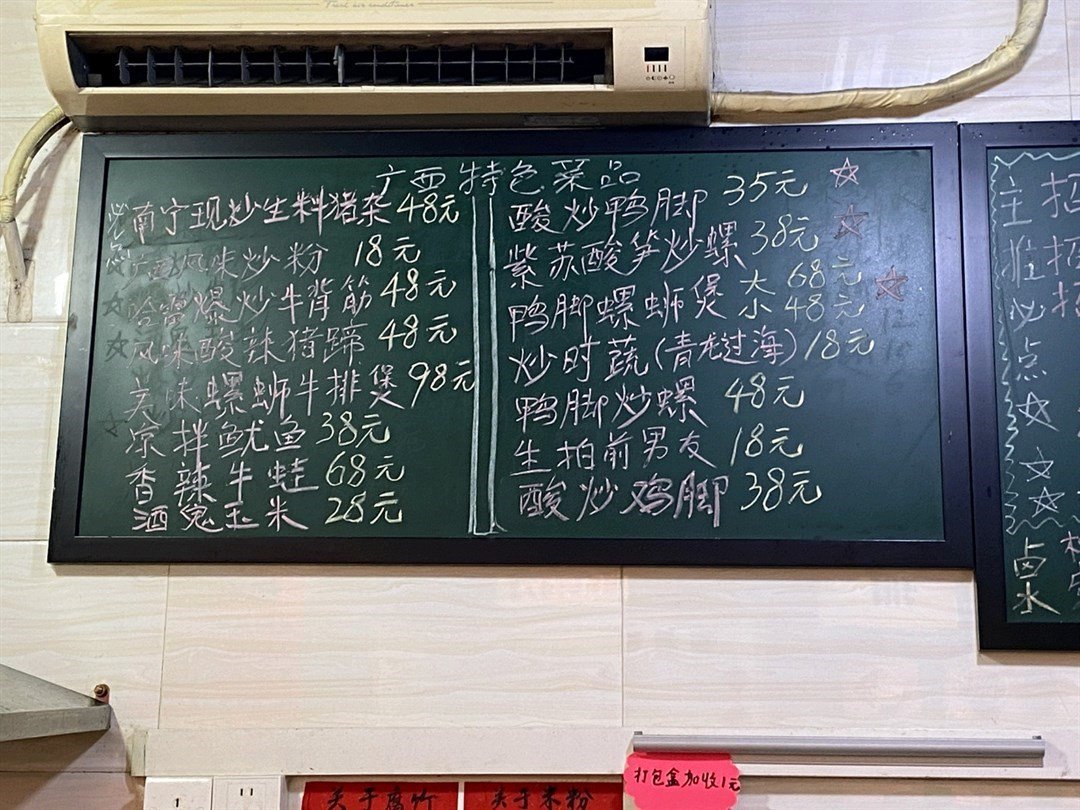 广西特色菜品
必点
南宁现炒生料猪杂 48元
风味炒粉 18元
爆炒牛背筋 48元
风味酸辣猪蹄 48元
美味螺蛳牛排煲 98元
凉拌鱿鱼 38元
香辣牛蛙 68元
酒鬼玉米 28元
酸炒鸭脚 35元
紫苏酸笋炒螺 38元
鸭脚螺蛳煲 大 68元
小 48元
炒时蔬(青龙过海) 18元
鸭脚炒螺 48元
生拍前男友 18元
酸炒鸡脚 38元
主推必点
招
招
招
卤水
打包盒加收1元
关于腐竹
关于米粉
1